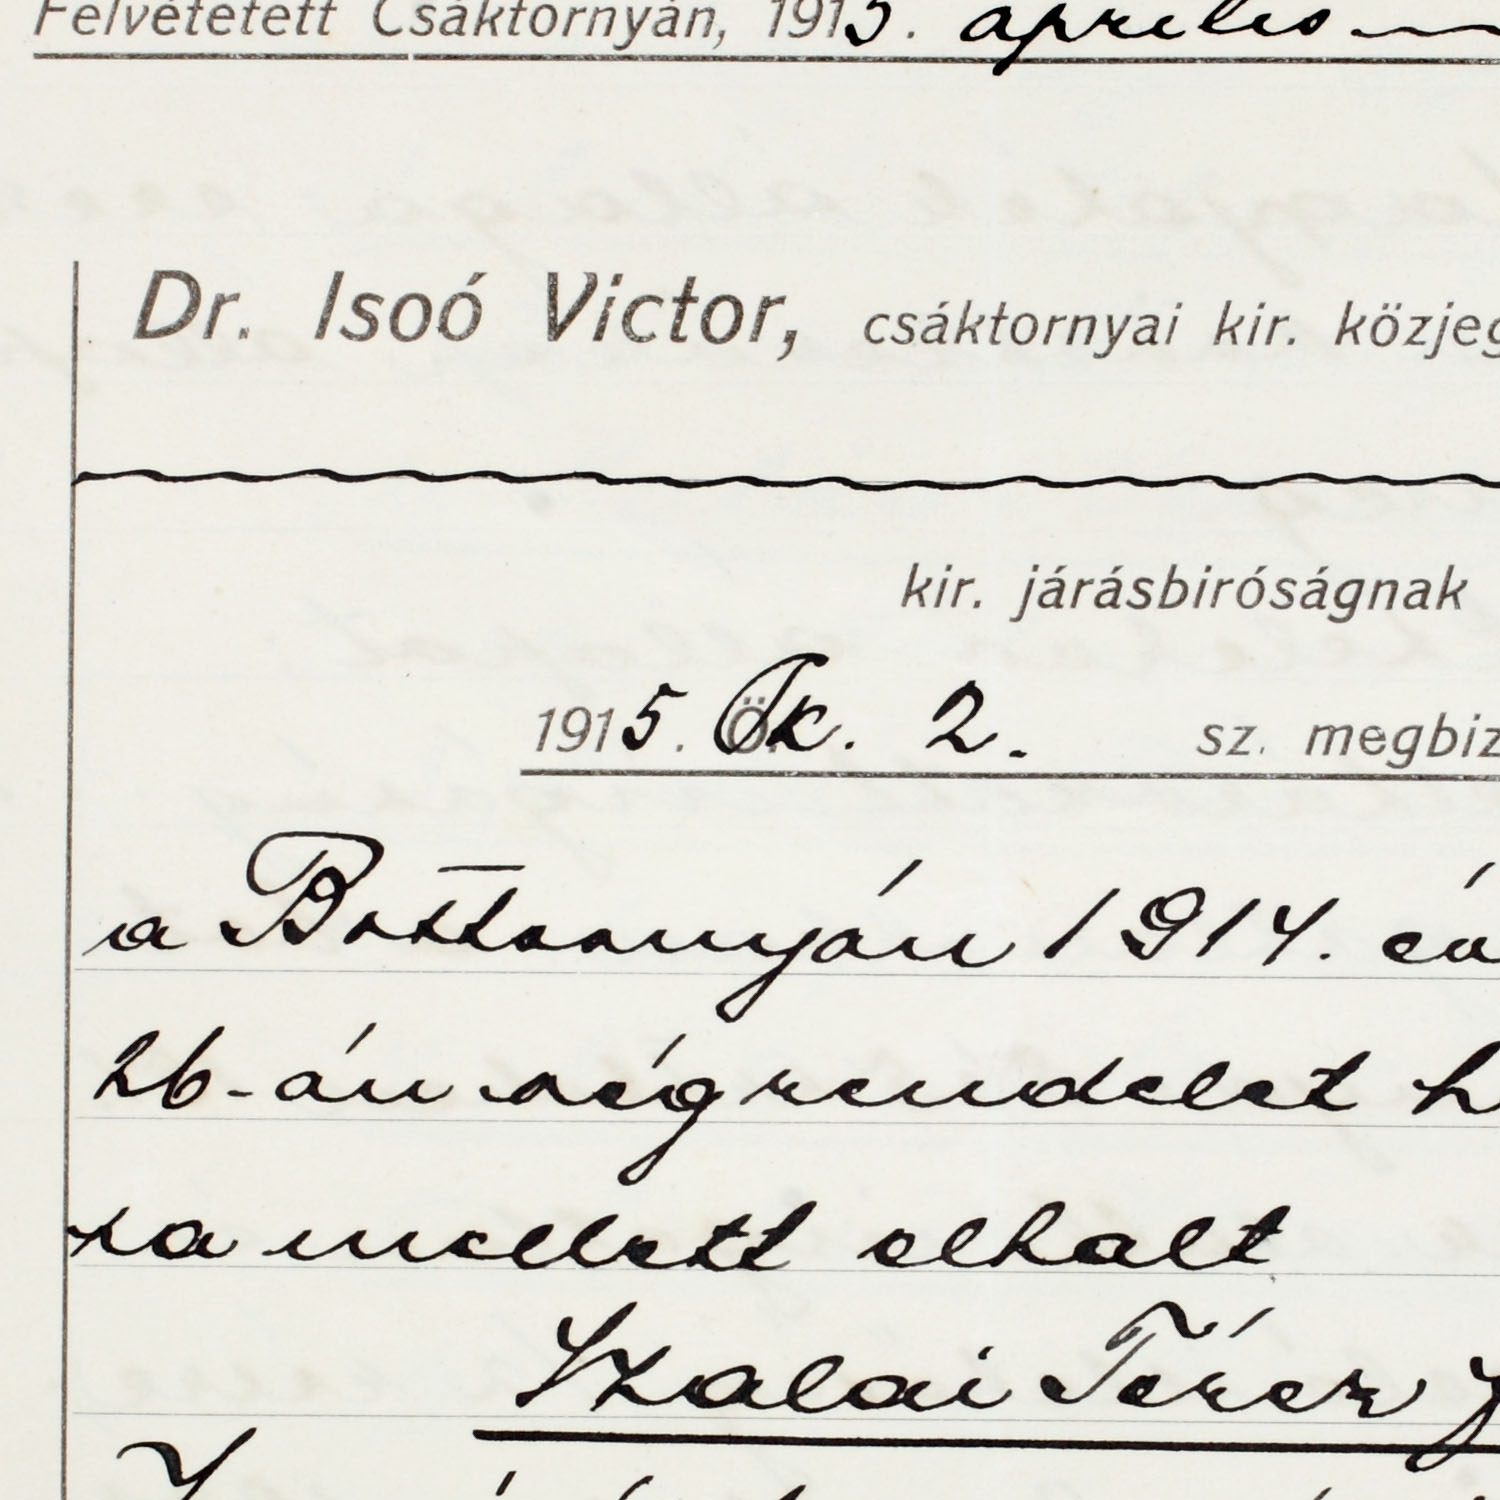 Felvétetett Csáktornyán, 1915. április
Dr. Isoó Victor, csáktornyai kir. közjeg
kir. járásbiróságnak
1915. Ök. 2. sz. megbiz
a Bottornyán 1914. év
26-án végrendelet h
sa mellett elhalt
Szalai Teréz